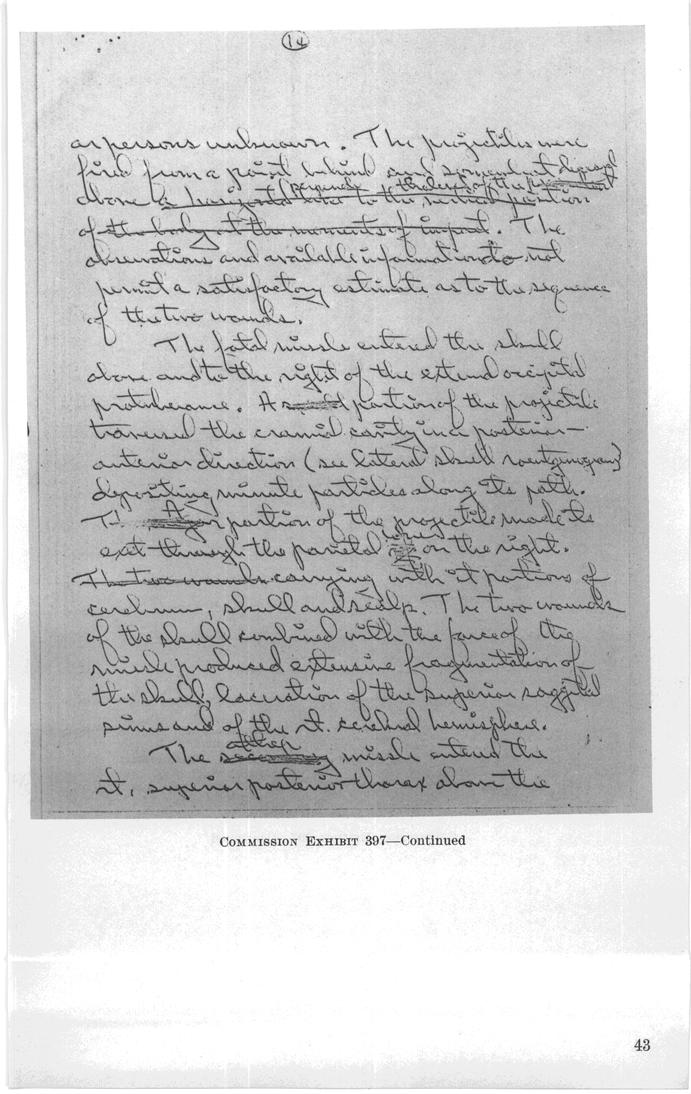 14
or persons unknown. The projectiles were
fired from a point behind and somewhat
above a horizontal line to the vertical position
of the body at the moment of impact. The
observations and available information do not
permit a satisfactory estimate as to the sequence
of the two wounds.
The fatal missile entered the skull
above and to the right of the extend occipital
protuberance. A portion of the projectile
traversed the cranial cavity in a posterior-
anterior direction (see lateral skull roentgenogram)
depositing minute particles along its path.
A portion of the projectile made its
exit through the parietal on the right.
The two wounds carrying with it portions of
cerebrum, skull and scalp. The two wounds
of the skull combined with the force of the
missile produced extensive fragmentation of
the skull, laceration of the superior saggital
sinus and of the rt. cerebral hemisphere.
other
The missile entered the
rt. superior posterior thorax above the
COMMISSION EXHIBIT 397—Continued
43